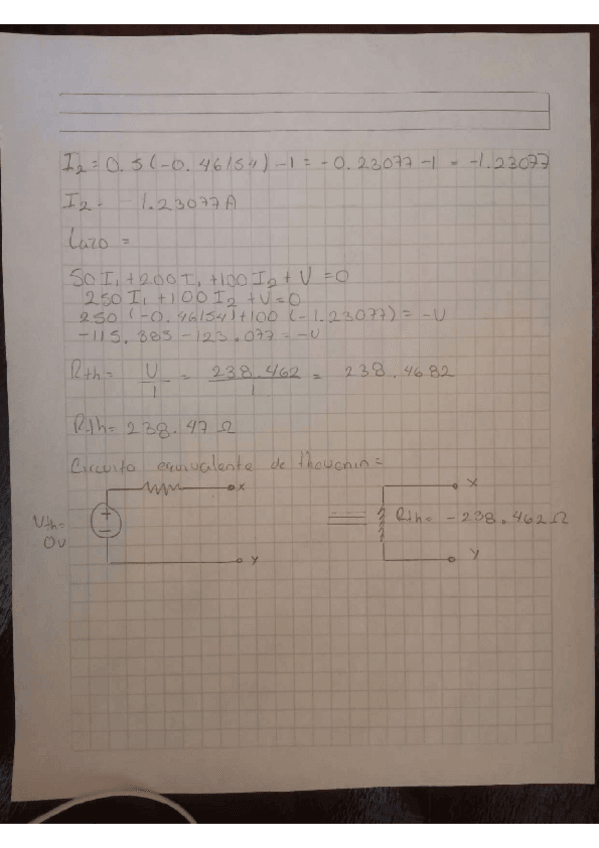 I₂ = 0.5(-0.46154)-1 = -0.23077-1 = -1.23077
I₂ = -1.23077A
Lazo =
50I₁+200I₁+100I₂+V=0
250I₁+100I₂+V=0
250(-0.46154)+100(-1.23077)=-V
-115.385-123.077=-V
Rth= V/1 = 238.462/1 = 238.4682
Rth=238.47Ω
Circuito equivalente de thevenin=
x
Vth=
0v
y
x
Rth= -238.462Ω
y